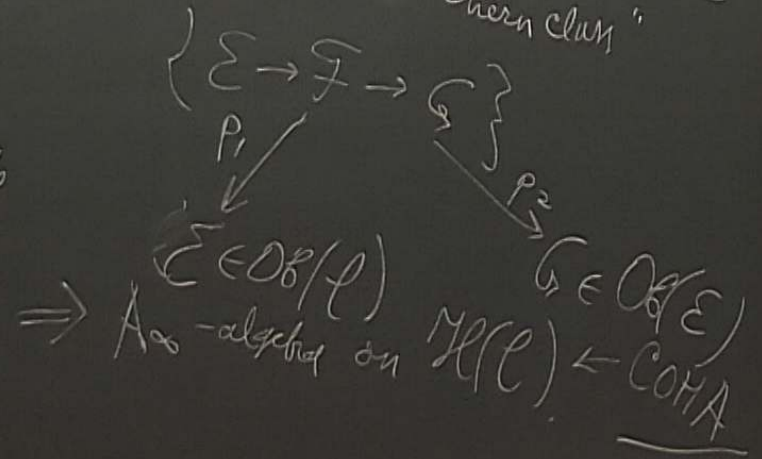 Chern class"
{ ℰ → ℱ → G }
P₁ P₂
ℰ ∈ Ob(𝒞) G ∈ Ob(ℰ)
⇒ A∞-algebra on ℋ(𝒞) ← COHA